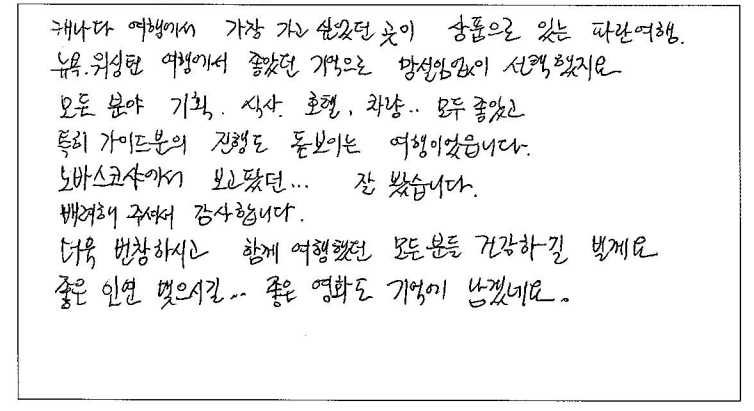 캐나다 여행에서 가장 가고 싶었던 곳이 상품으로 있는 파란여행.
뉴욕.워싱턴 여행에서 좋았던 기억으로 망설임없이 선택했지요
모든 분야 기획. 식사. 호텔, 차량.. 모두 좋았고
특히 가이드분의 진행도 돋보이는 여행이었읍니다.
노바스코샤에서 보고팠던... 잘 봤습니다.
배려해 주셔서 감사합니다.
더욱 번창하시고 함께 여행했던 모든분들 건강하길 빌게요
좋은 인연 맺으시길... 좋은 영화도 기억에 남겠네요.